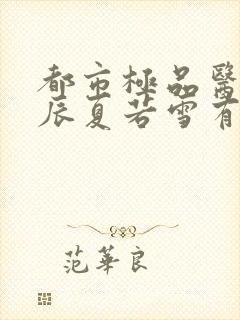 都市極品醫
辰夏若雪有
范華良